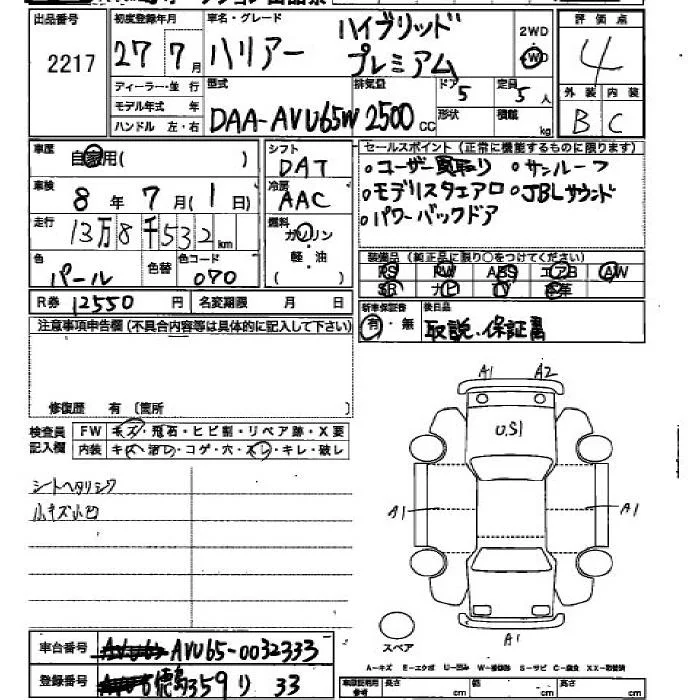 出品番号 2217
初度登録年月 27 7月
車名・グレード ハリアー ハイブリッド プレミアム
2WD 4WD
評価点 4
外装 B 内装 C
ディーラー・並行
モデル年式 年
ハンドル 左・右
型式 DAA-AVU65W
排気量 2500 cc
ドア 5
形状
定員 5 人
積載 kg
車歴 自家用( )
シフト DAT
セールスポイント (正常に機能するものに限ります)
。ユーザー買取り 。サンルーフ
。モデリスタエアロ 。JBLサウンド
。パワーバックドア
車検 8年 7月(1日)
冷房 AAC
走行 13万8千532km
燃料 ガソリン
軽・油
( )
色 パール
色替
色コード 070
装備品 (純正品に限り○をつけてください)
PS PW ABS エアB AW
SR ナビ TV 革
R券 12550 円 名変期限 月 日
新車保証書 有・無
後日品 取説、保証書
注意事項申告欄(不具合内容等は具体的に記入して下さい)
修復歴 有 〔箇所
検査員記入欄
FW キズ・飛石・ヒビ割・リペア跡・X要
内装 キズ・汚レ・コゲ・穴・スレ・キレ・破レ
シートヘタリシワ
小キズ小凹
A1 A2
U.S1
A1 A1
A1
スペア
A-キズ E-エクボ U-凹み W-補修跡 S-サビ C-腐食 XX-取替済
車台番号 AVU65-0032333
登録番号 徳島359 り 33
車載説明用参考 長さ cm 幅 cm 高さ cm